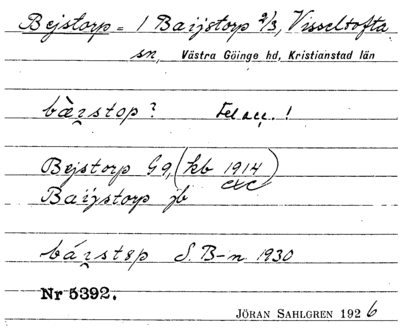 Bejstorp = 1 Baijstorp 2/3, Visseltofta
sn, Västra Göinge hd, Kristianstad län
bæ̀i̯stop? Fel acc. !
Bejstorp G9, (kb 1914)
Baijstorp jb
S. B-n 1930
Nr 5392.
JÖRAN SAHLGREN 1926